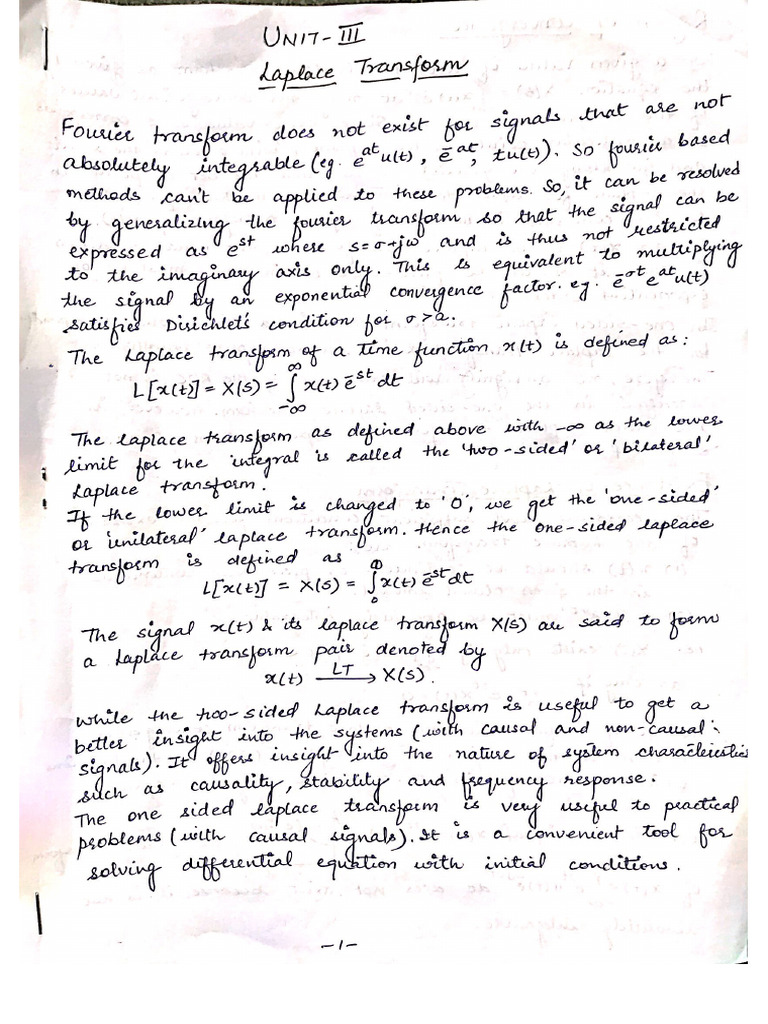 UNIT-III
Laplace Transform
Fourier transform does not exist for signals that are not
absolutely integrable (eg. e^at u(t), e^-at, tu(t)). So fourier based
methods can't be applied to these problems. So, it can be resolved
by generalizing the fourier transform so that the signal can be
expressed as e^st where s=σ+jω and is thus not restricted
to the imaginary axis only. This is equivalent to multiplying
the signal by an exponential convergence factor. eg. e^-σt e^at u(t)
satisfies Dirichlet's condition for σ>a.
The Laplace transform of a time function x(t) is defined as:
L[x(t)] = X(s) = ∫_-∞^∞ x(t) e^-st dt
The laplace transform as defined above with -∞ as the lower
limit for the integral is called the 'two-sided' or 'bilateral'
Laplace transform.
If the lower limit is changed to '0', we get the 'one-sided'
or 'unilateral' laplace transform. Hence the one-sided laplace
transform is defined as
L[x(t)] = X(s) = ∫_0^∞ x(t) e^-st dt
The signal x(t) & its laplace transform X(s) are said to form
a Laplace transform pair denoted by
x(t) —LT→ X(s).
While the two-sided Laplace transform is useful to get a
better insight into the systems (with causal and non-causal
signals). It offers insight into the nature of system characteristics
such as causality, stability and frequency response.
The one sided laplace transform is very useful to practical
problems (with causal signals). It is a convenient tool for
solving differential equation with initial conditions.
-1-